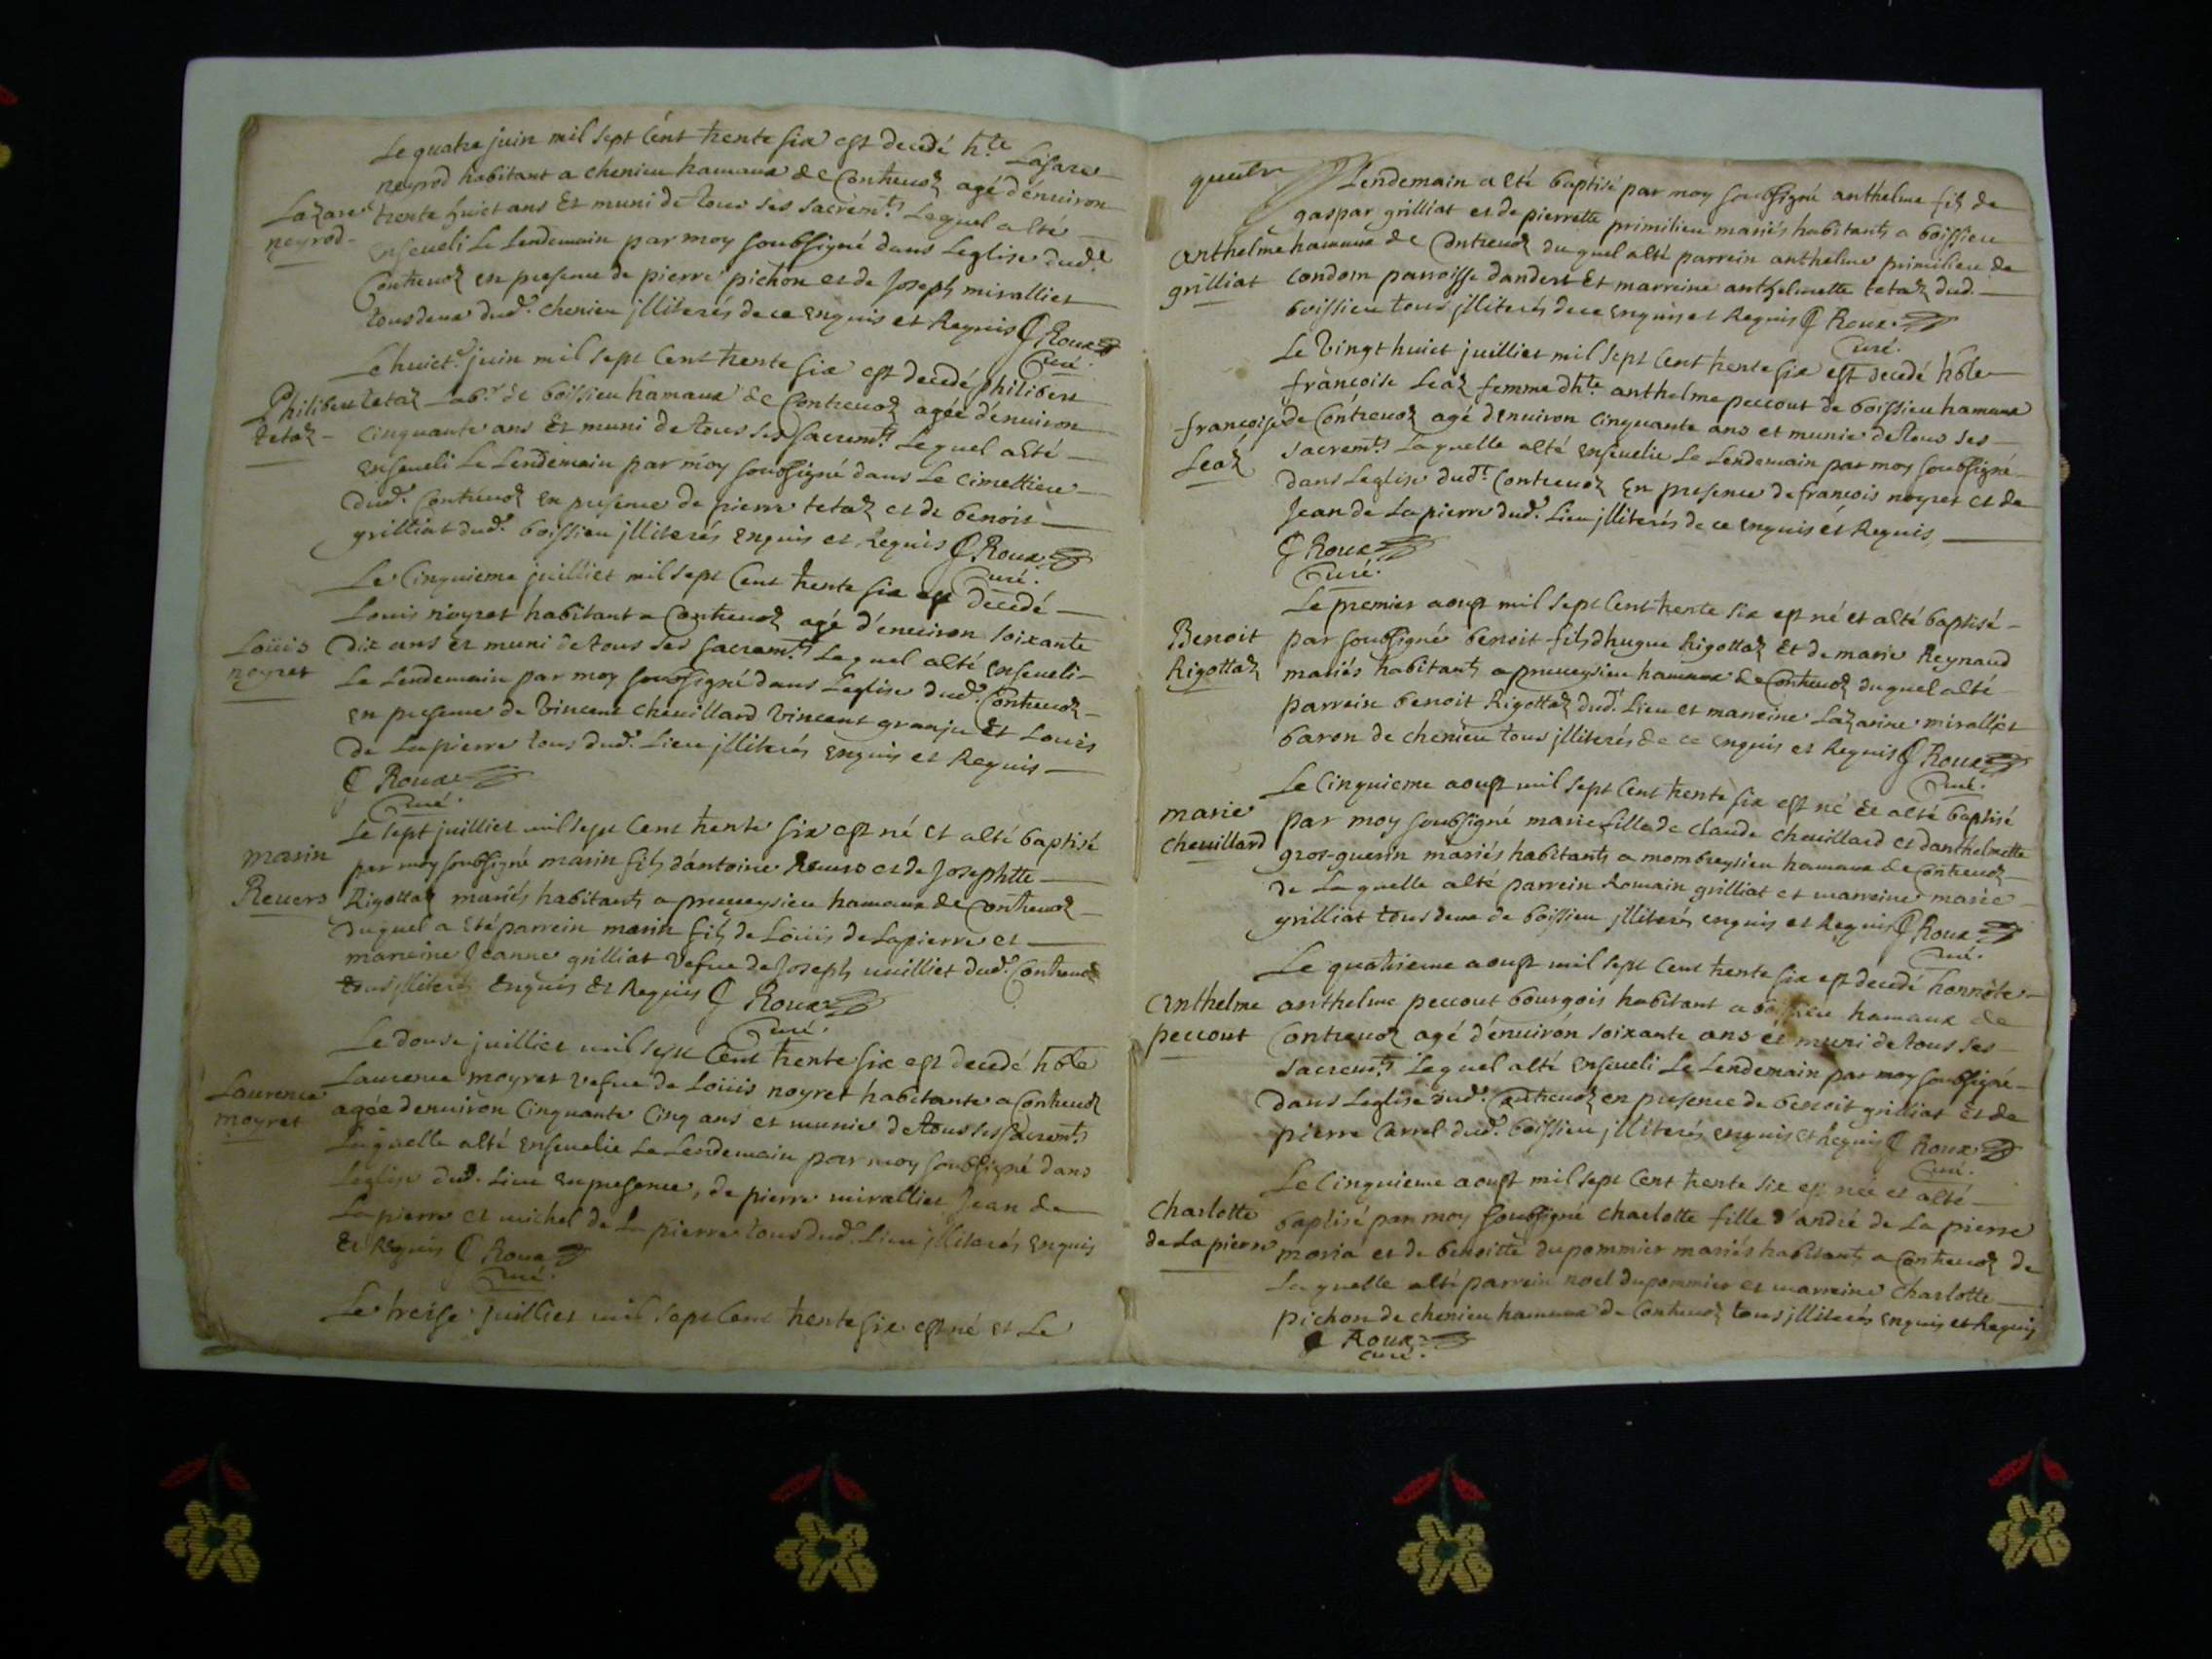 Le quatre juin mil sept Cent trente six est decedé h.te Lasare
neyrod habitant a chenieu hamaux de Contrevoz agé d'enuiron
Lazare
neyrod
trente huict ans Et muni de tous ses sacrem.ts Lequel a esté
Enseueli Le Lendemain par moy soubsigné dans Leglise dud.t
Contrevoz en presence de pierre pichon et de Joseph miralliet
tous deux dud.t chenieu jlliterés de ce enquis et Requis Roux
Curé.
Le huict.e juin mil sept Cent trente six est decedé philibert
Philibert
tetaz
tetaz Lab.r de boissieu hamaux de Contrevoz agée d'enuiron
Cinquante ans Et muni de tous ses sacrem.ts Lequel a esté
Enseueli Le Lendemain par moy soubsigné dans Le cimettiere
dud.t Contrevoz en presence de pierre tetaz et de benoit
grilliat dud.t boissieu jlliterés enquis et Requis Roux
Curé.
Le Cinquieme juilliet mil sept Cent trente six est decedé
Louis noyret habitant a Contrevoz agé d'enuiron soixante
Loüis
noyret
Dix ans et muni de tous ses sacrem.ts Lequel a esté enseueli
Le Lendemain par moy soubsigné dans Leglise dud.t Contrevoz
en presence de Vincent cheuillard Vincent granju Et Louis
de Lapierre tous dud.t Lieu jlliterés enquis et Requis
Roux
Curé.
Le sept juilliet mil sept Cent trente six est né et a esté baptisé
marin
Reuers
par moy soubsigné marin fils d'antoine Reuers et de Josephtte
Rigottaz mariés habitants a preueysieu hamaux de Contrevoz
Duquel a Eté parrein marin fils de Loüis de Lapierre et
marreine Jeanne grilliat Vefue de Joseph uuilliet dud.t Contrevoz
tous jlliterés Enquis Et Requis Roux
Curé.
Le douse juilliet mil sept Cent trente six est decedé h.ble
Laurence
moyret
Laurence moyret vefue de Loüis noyret habitante a Contrevoz
agée denuiron Cinquante Cinq ans et munie de tous ses sacrem.ts
Laquelle a esté enseuelie Le Lendemain par moy soubsigné dans
Leglise dud.t Lieu en presence, de pierre miralliet Jean de
Lapierre et michel de Lapierre tous dud.t Lieu jlliterés enquis
Et Requis Roux
Curé.
Le treise juilliet mil sept Cent trente six est né et Le
Lendemain a esté baptisé par moy soubsigné anthelme fils de
gaspar grilliat et de pierrette primilieu mariés habitants a boissieu
Anthelme
grilliat
hamaux de Contrevoz du quel a esté parrein anthelme primilieu de
Condom parroisse dandert Et marreine anthelmette tetaz dud.
boissieu tous jlliterés de ce enquis et Requis Roux
Curé.
Le Vingt huict juilliet mil sept Cent trente six est decedé h.ble
françoise Leaz femme d'h.te anthelme peccout de boissieu hamaux
françoise
Leaz
de Contrevoz agé d'enuiron cinquante ans et munie de tous ses
sacrem.ts Laquelle a esté enseuelie Le Lendemain par moy soubsigné
dans Leglise dud.t Contrevoz en presence de francois noyret et de
Jean de Lapierre dud.t Lieu jlliterés de ce enquis et Requis,
Roux
Curé.
Le premier aoust mil sept Cent trente six est né et a esté baptisé
Benoit
Rigottaz
par soubsigné benoit fils d'hugue Rigottaz Et de marie Reynaud
mariés habitants a preueysieu hamaux de Contrevoz duquel a esté
parrein benoit Rigottaz dud.t Lieu et marreine Lazarine miralliet
baron de chenieu tous jlliterés de ce enquis et Requis Roux
Curé.
Le Cinquieme aoust mil sept Cent trente six est né et a esté baptisé
marie
cheuillard
par moy soubsigné marie fille de claude cheuillard et danthelmette
gros-guerin mariés habitants a mombreysieu hamaux de Contrevoz
de Laquelle a esté parrein Romain grilliat et marreine marie
grilliat tous deux de boissieu jlliterés enquis et Requis Roux
Curé.
Le quatrieme aoust mil sept Cent trente six est decedé honnéte
Anthelme
peccout
anthelme peccout bourgois habitant a boissieu hamaux de
Contrevoz agé d'enuiron soixante ans et muni de tous ses
sacrem.ts Lequel a esté enseueli Le Lendemain par moy soubsigné
dans Leglise dud.t Contrevoz en presence de benoit grilliat et de
pierre Carrel dud.t boissieu jlliterés enquis et Requis Roux
Curé.
Le Cinquieme aoust mil sept Cent trente six est née et a esté
charlotte
de Lapierre
baptisé par moy soubsigné charlotte fille d'andré de Lapierre
moria et de benoitte dupommier mariés habitants a Contrevoz de
Laquelle a esté parrein noel dupommier et marreine Charlotte
pichon de chenieu hamaux de Contrevoz tous jlliterés enquis et Requis
Roux
curé.